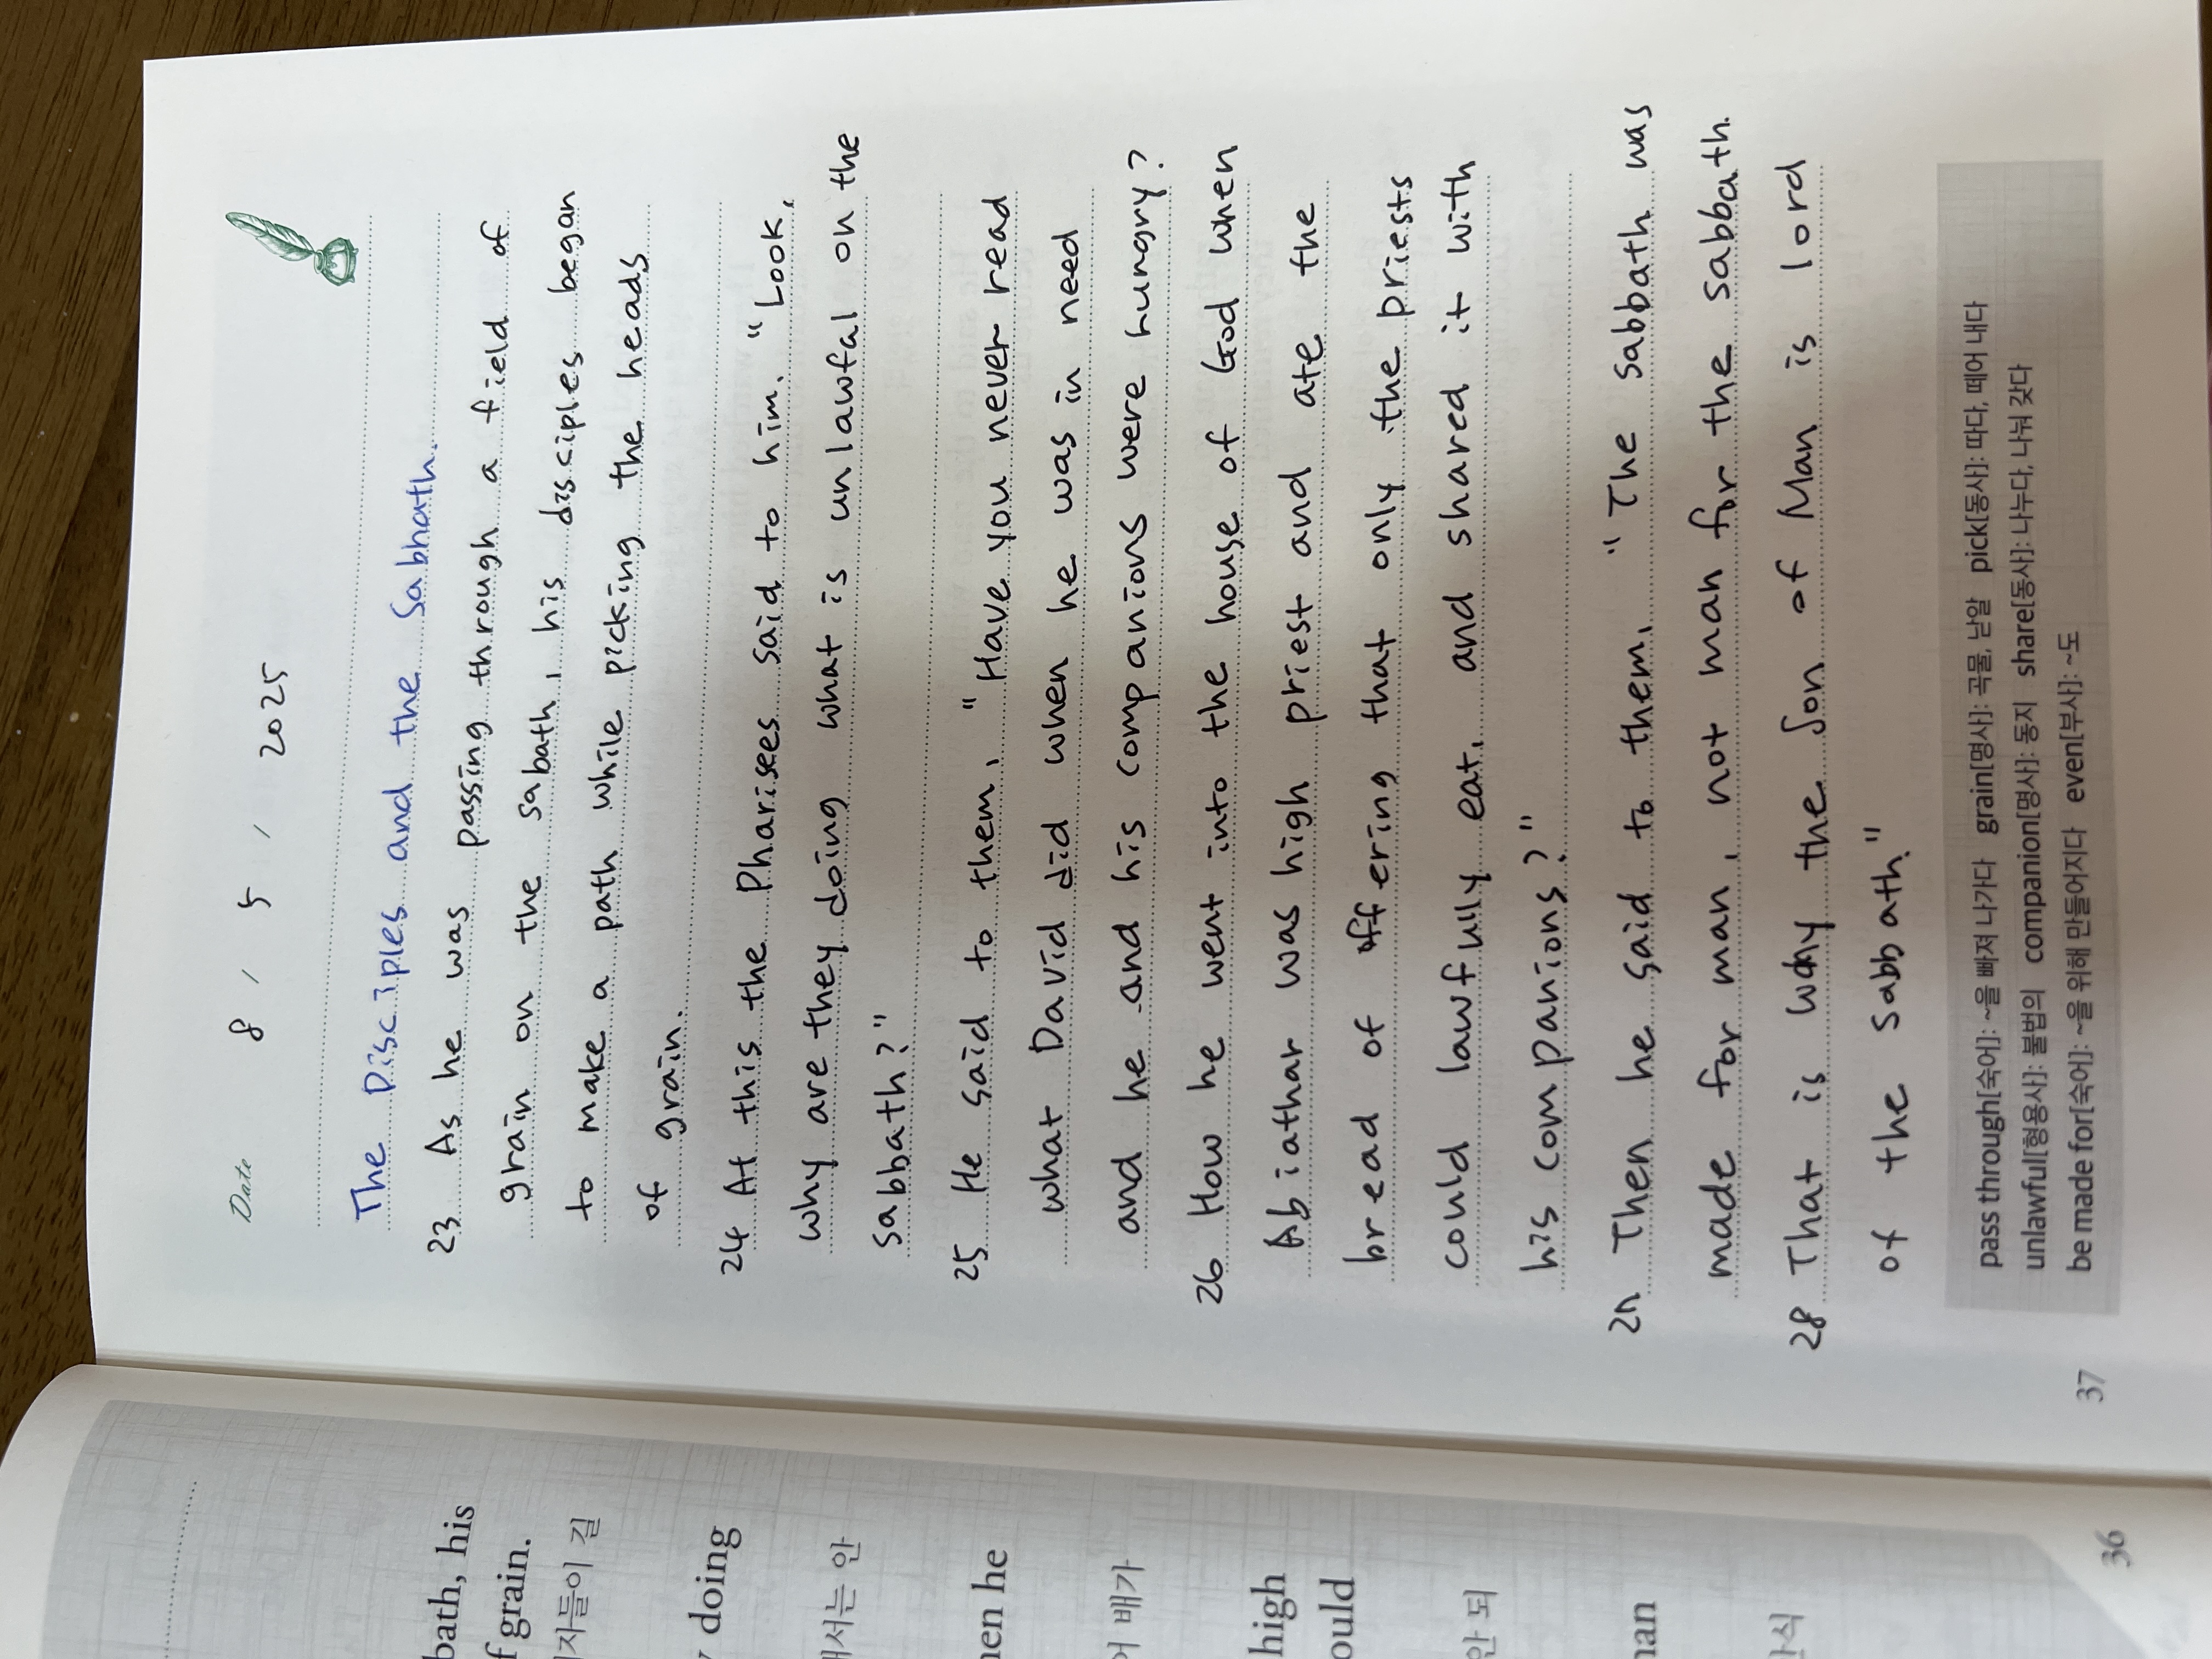 Date 8 / 5 / 2025
The Disciples and the Sabhath.
23 As he was passing through a field of
grain on the sabath, his disciples began
to make a path while picking the heads
of grain.
24 At this the Pharisees said to him. "Look,
why are they doing what is unlawful on the
sabbath?"
25 He said to them, "Have you never read
what David did when he was in need
and he and his companions were hungry?
26 How he went into the house of God when
Abiathar was high priest and ate the
bread of offering that only the priests
could lawfully eat, and shared it with
his companions?"
27 Then he said to them. "The sabbath was
made for man, not man for the sabbath.
28 That is why the Son of Man is lord
of the sabbath."
pass through[숙어]: ~을 빠져 나가다 grain[명사]: 곡물, 낟알 pick[동사]: 따다, 떼어 내다
unlawful[형용사]: 불법의 companion[명사]: 동지 share[동사]: 나누다, 나눠 갖다
be made for[숙어]: ~을 위해 만들어지다 even[부사]: ~도
37
bath, his
f grain.
자들이 길
doing
해서는 안
hen he
배가
high
ould
안 되
man
안식
36